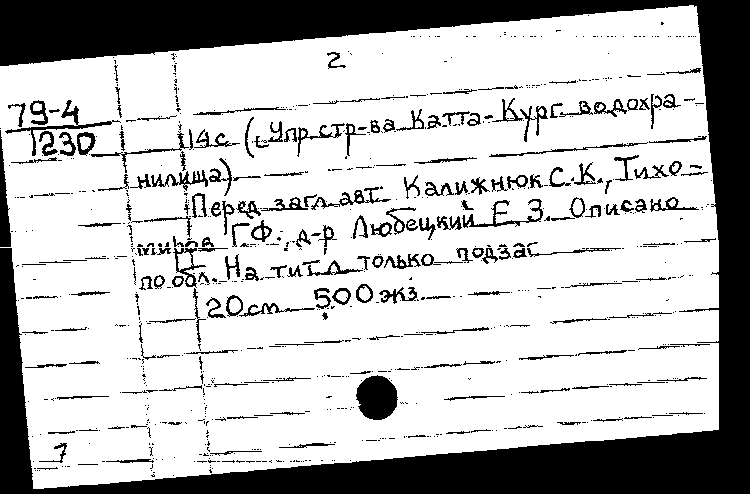 2
79-4
1230
14 с (Упр. стр-ва Катта-Кург. водохра-
нилища).
Перед загл. авт. Калижнюк С.К., Тихо-
миров Г.Ф., д-р Любецкий Е.З. Описано
по обл. На тит. л. только подзаг.
20 см 500 экз.
7